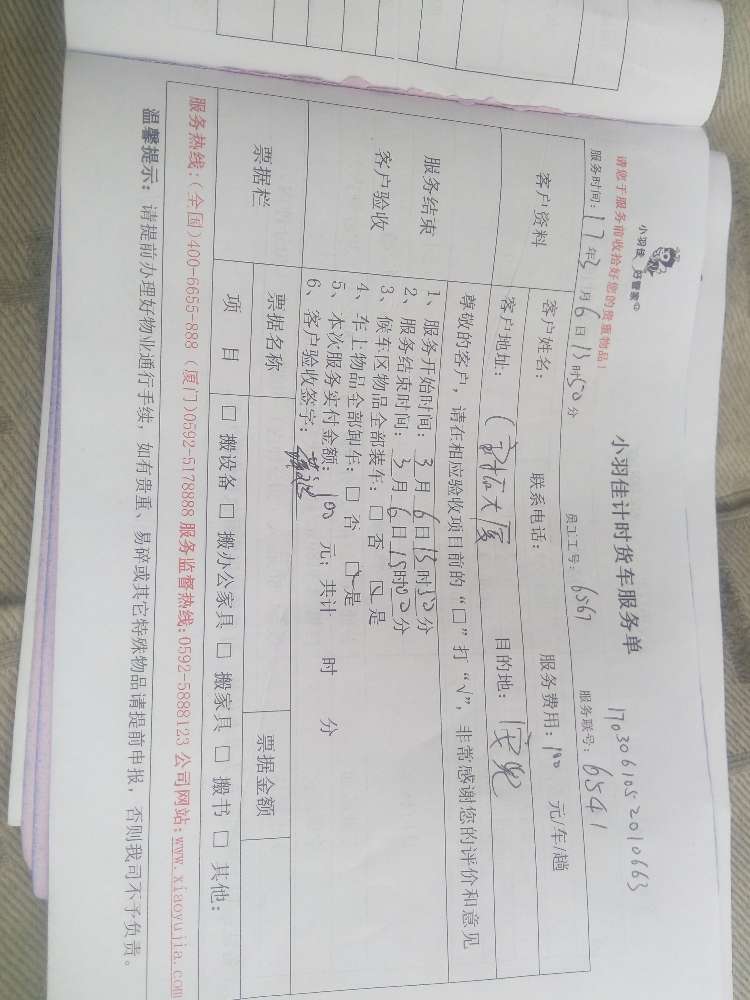 小羽佳 好管家®
小羽佳计时货车服务单
1703061052010663
请您于服务前收拾好您的贵重物品！
服务时间：17年3月6日13时50分 员工工号：6567 服务联号：6541
客户资料
客户姓名： 联系电话： 服务费用：100 元/车/趟
客户地址： 大厦 目的地：
尊敬的客户，请在相应验收项目前的“□”打“√”，非常感谢您的评价和意见
服务结束
客户验收
1、服务开始时间：3月6日13时50分
2、服务结束时间：3月6日15时00分
3、候车区物品全部装车：□ 否 □ 是
4、车上物品全部卸车：□ 否 □ 是
5、本次服务实付金额：100 元；共计 时 分
6、客户验收签字：
票据栏
票据名称 票据金额
项 目 □ 搬设备 □ 搬办公家具 □ 搬家具 □ 搬书 □ 其他：
服务热线：(全国)400-6655-888 (厦门)0592-5178888 服务监督热线:0592-5888123 公司网站:www.xiaoyujia.com
温馨提示：请提前办理好物业通行手续，如有贵重、易碎或其它特殊物品请提前申报，否则我司不予负责。